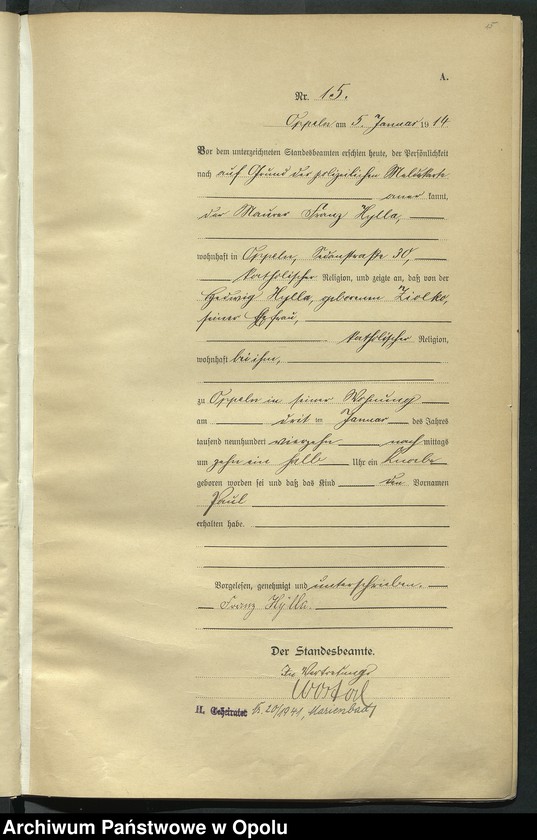 15
A.
Nr. 15.
Oppeln am 5. Januar 1914.
Vor dem unterzeichneten Standesbeamten erschien heute, der Persönlichkeit
nach auf Grund der polizeilichen Meldekarte
aner kannt,
der Maurer Franz Hylla,
wohnhaft in Oppeln, Sedanstraße 30,
katholischer Religion, und zeigte an, daß von der
Hedwig Hylla, geborenen Ziolko,
seiner Ehefrau,
katholischer Religion,
wohnhaft bei ihm,
zu Oppeln in seiner Wohnung
am drit en Januar des Jahres
tausend neunhundert vierzehn nach mittags
um zehn ein halb Uhr ein Knabe
geboren worden sei und daß das Kind den Vornamen
Paul
erhalten habe.
Vorgelesen, genehmigt und unterschrieben.
Franz Hylla.
Der Standesbeamte.
In Vertretung
II. Geheiratet 20/1941, Marienbad
Archiwum Państwowe w Opolu